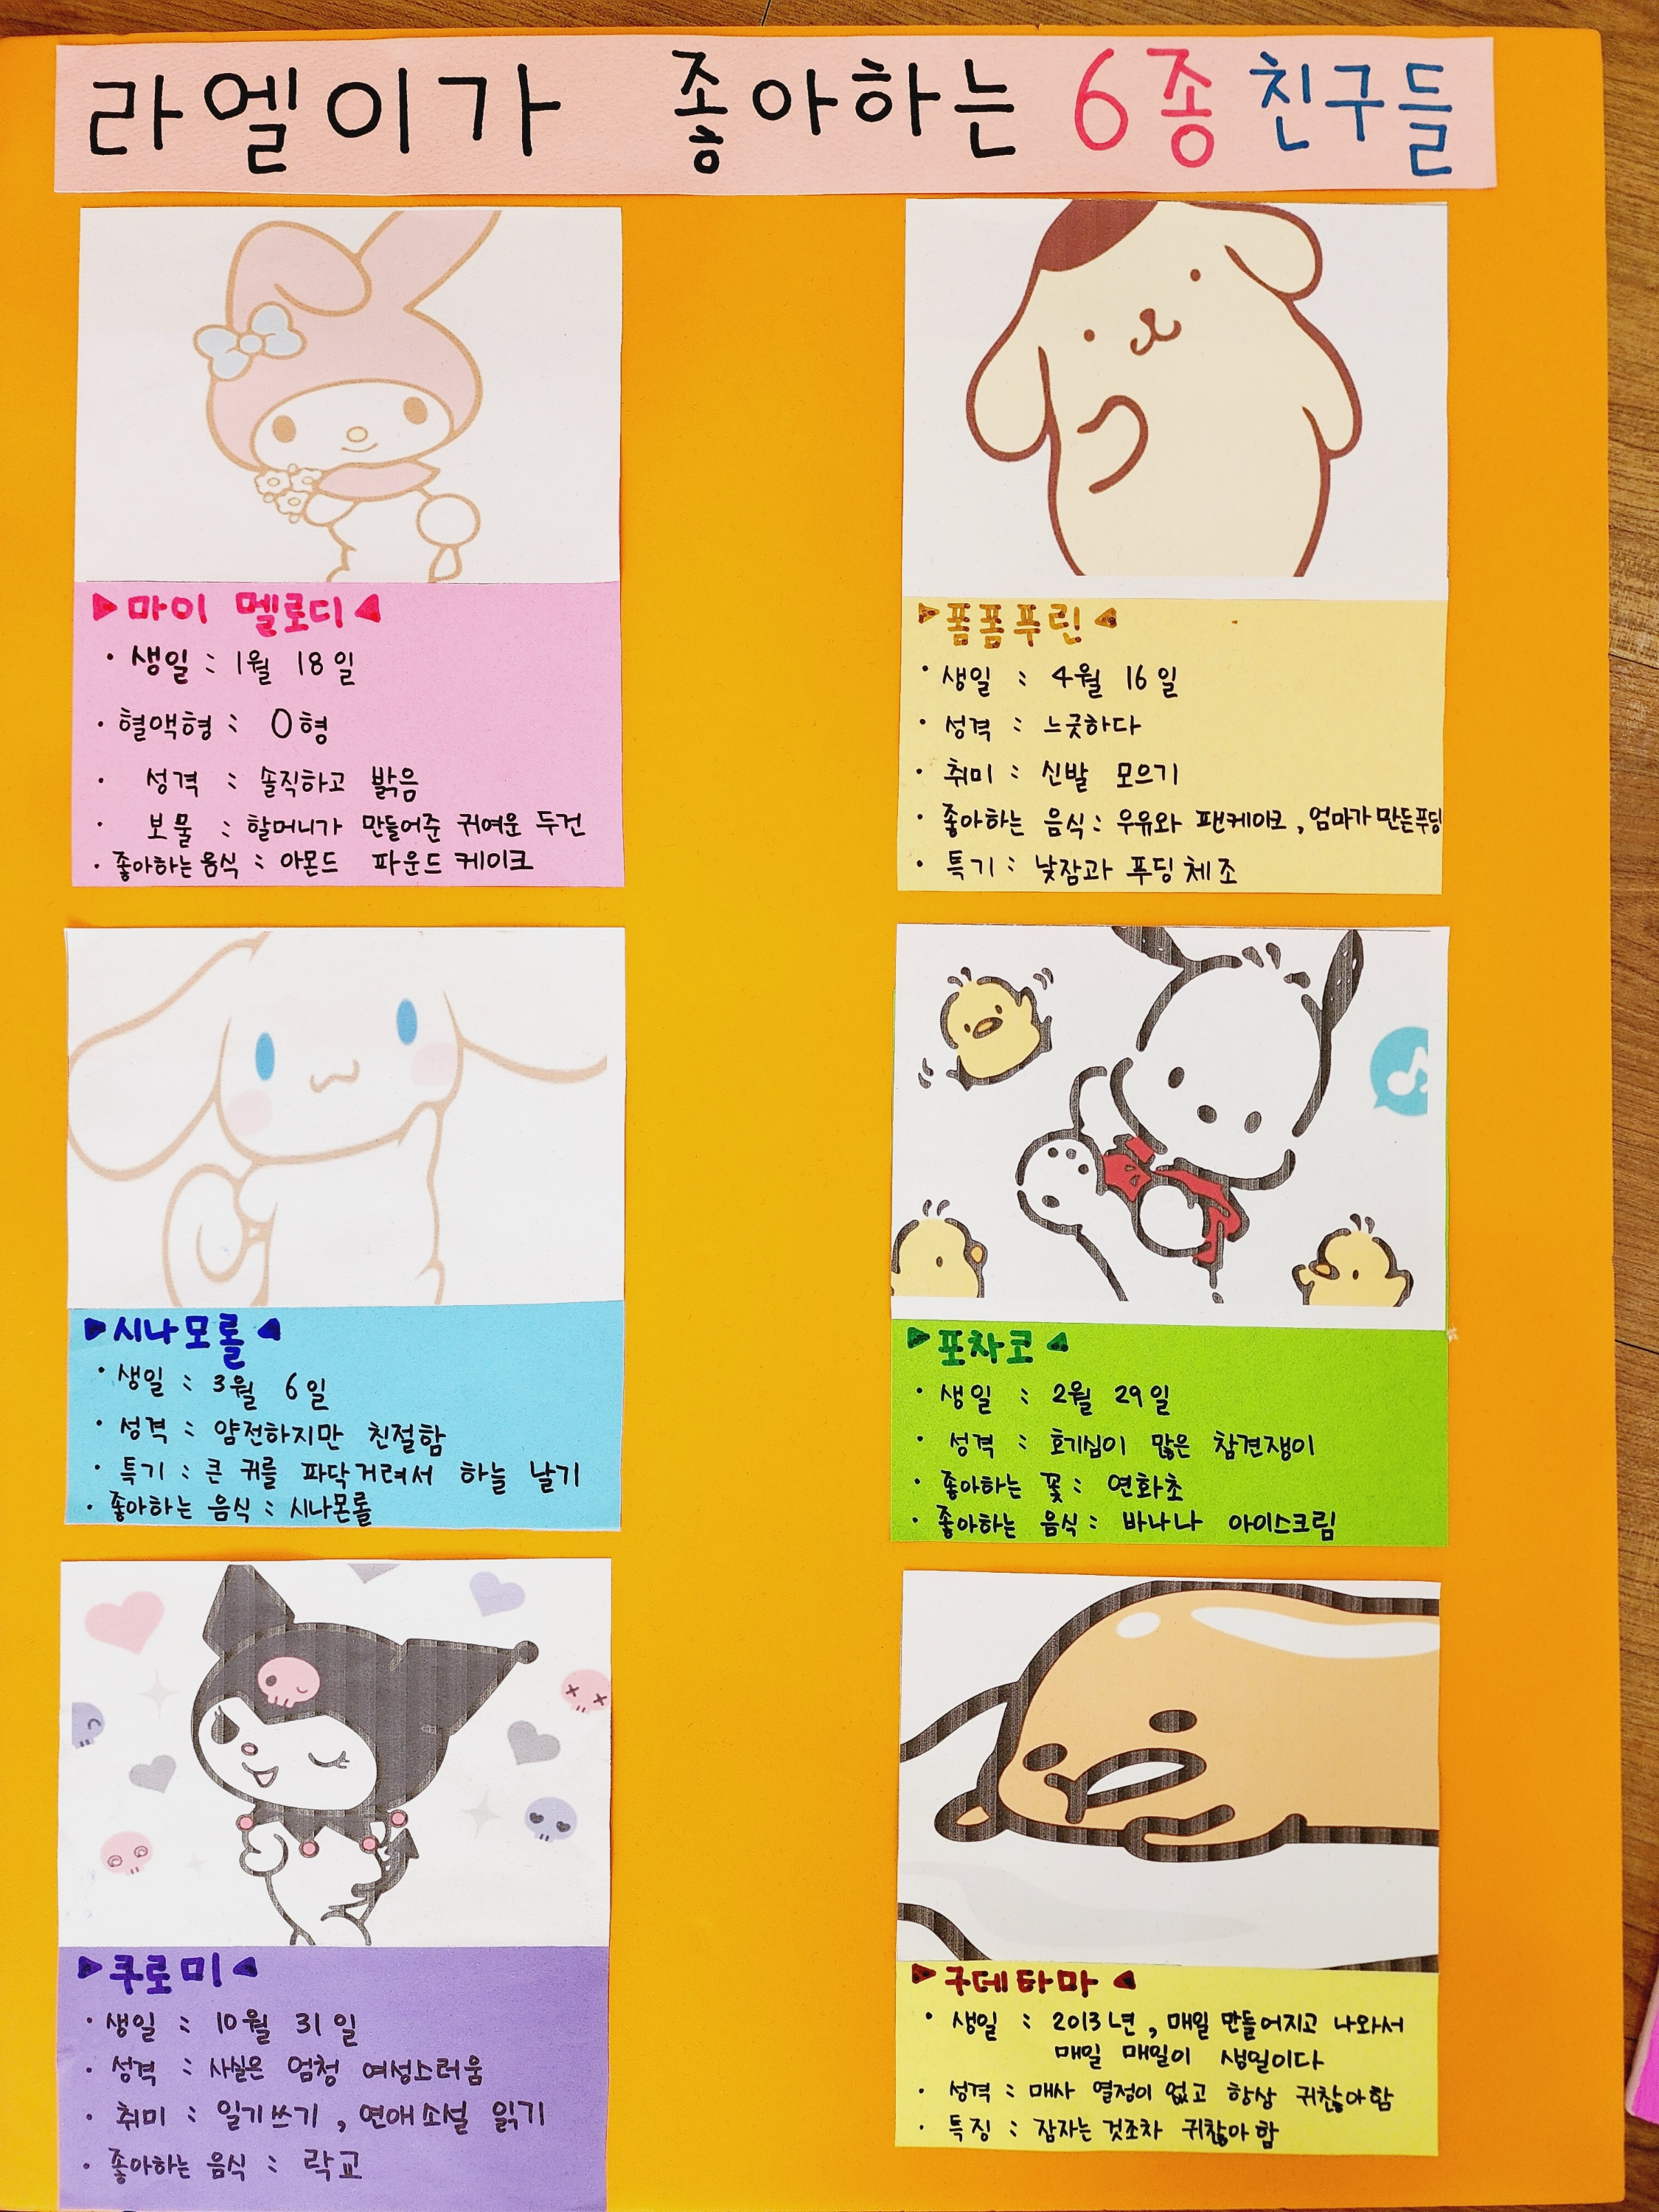 라엘이가 좋아하는 6종 친구들
▶마이 멜로디◀
· 생일 : 1월 18일
· 혈액형 : O형
· 성격 : 솔직하고 밝음
· 보물 : 할머니가 만들어준 귀여운 두건
· 좋아하는 음식 : 아몬드 파운드 케이크
▶폼폼푸린◀
· 생일 : 4월 16일
· 성격 : 느긋하다
· 취미 : 신발 모으기
· 좋아하는 음식 : 우유와 팬케이크, 엄마가 만든푸딩
· 특기 : 낮잠과 푸딩체조
▶시나모롤◀
· 생일 : 3월 6일
· 성격 : 얌전하지만 친절함
· 특기 : 큰 귀를 파닥거려서 하늘 날기
· 좋아하는 음식 : 시나몬롤
▶포차코◀
· 생일 : 2월 29일
· 성격 : 호기심이 많은 참견쟁이
· 좋아하는 꽃 : 연화초
· 좋아하는 음식 : 바나나 아이스크림
▶쿠로미◀
· 생일 : 10월 31일
· 성격 : 사실은 엄청 여성스러움
· 취미 : 일기쓰기, 연애소설 읽기
· 좋아하는 음식 : 락교
▶구데타마◀
· 생일 : 2013년, 매일 만들어지고 나와서
매일 매일이 생일이다
· 성격 : 매사 열정이 없고 항상 귀찮아함
· 특징 : 잠자는 것조차 귀찮아함